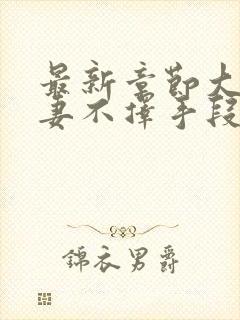 最新章节大
妻不择手段
錦衣男爵